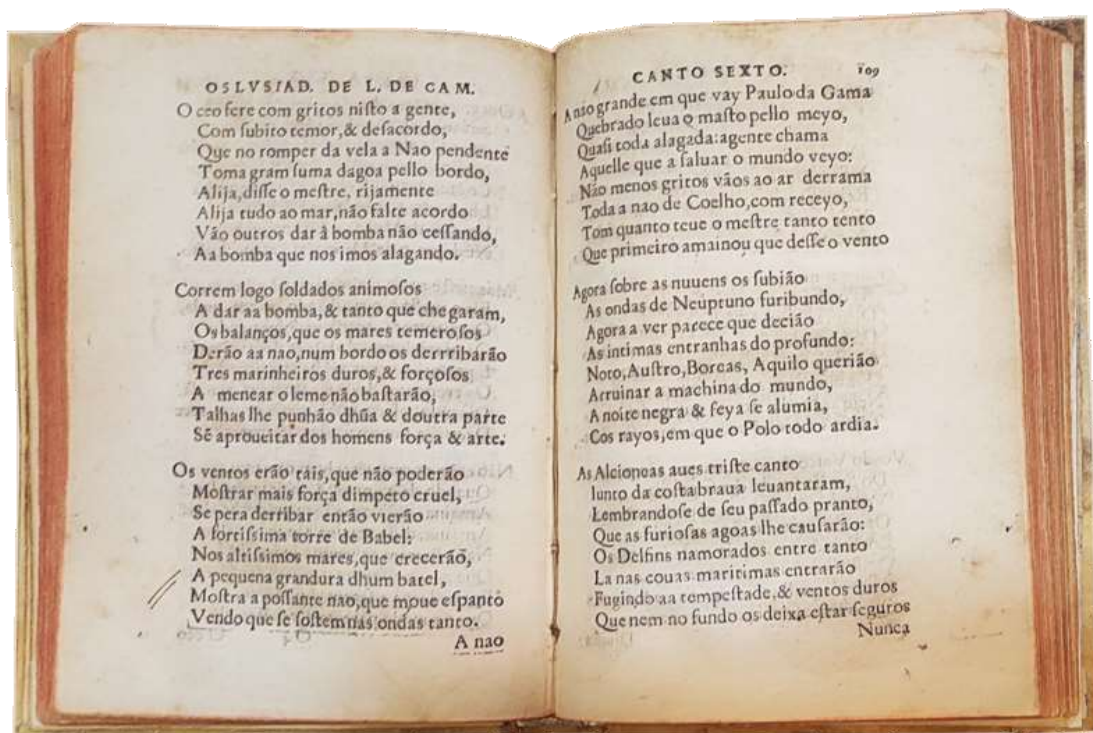 OS LVSIAD. DE L. DE CAM.
O ceo fere com gritos niſto a gente,
Com ſubito temor, & deſacordo,
Que no romper da vela a Nao pendente
Toma gram ſuma dagoa pello bordo,
Alija, diſſe o meſtre, rijamente
Alija tudo ao mar, não falte acordo
Vão outros dar â bomba não ceſſando,
Aa bomba que nos imos alagando.
Correm logo ſoldados animoſos
A dar aa bomba, & tanto que chegaram,
Os balanços, que os mares temeroſos
Derão aa nao, num bordo os derrribarão
Tres marinheiros duros, & forçoſos
A menear o leme não baſtarão,
Talhas lhe punhão dhũa & doutra parte
Sẽ aproueitar dos homens força & arte.
Os ventos erão tais, que não poderão
Moſtrar mais força dimpeto cruel,
Se pera derribar então vierão
A fortiſsima torre de Babel:
Nos altiſsimos mares, que crecerão,
A pequena grandura dhum batel,
Moſtra a poſſante nao, que moue eſpanto
Vendo que ſe ſoſtem nas ondas tanto.
A nao
CANTO SEXTO. 109
A nao grande em que vay Paulo da Gama
Quebrado leua o maſto pello meyo,
Quaſi toda alagada: a gente chama
Aquelle que a ſaluar o mundo veyo:
Não menos gritos vãos ao ar derrama
Toda a nao de Coelho, com receyo,
Tom quanto teue o meſtre tanto tento
Que primeiro amainou que deſſe o vento
Agora ſobre as nuuens os ſubião
As ondas de Neuptuno furibundo,
Agora a ver parece que decião
As intimas entranhas do profundo:
Noto, Auſtro, Boreas, Aquilo querião
Arruinar a machina do mundo,
A noite negra & feya ſe alumia,
Cos rayos, em que o Polo todo ardia.
As Alcioneas aues triſte canto
Iunto da coſta braua leuantaram,
Lembrandoſe de ſeu paſſado pranto,
Que as furioſas agoas lhe cauſarão:
Os Delfins namorados entre tanto
La nas couas maritimas entrarão
Fugindo aa tempeſtade, & ventos duros
Que nem no fundo os deixa eſtar ſeguros
Nunca